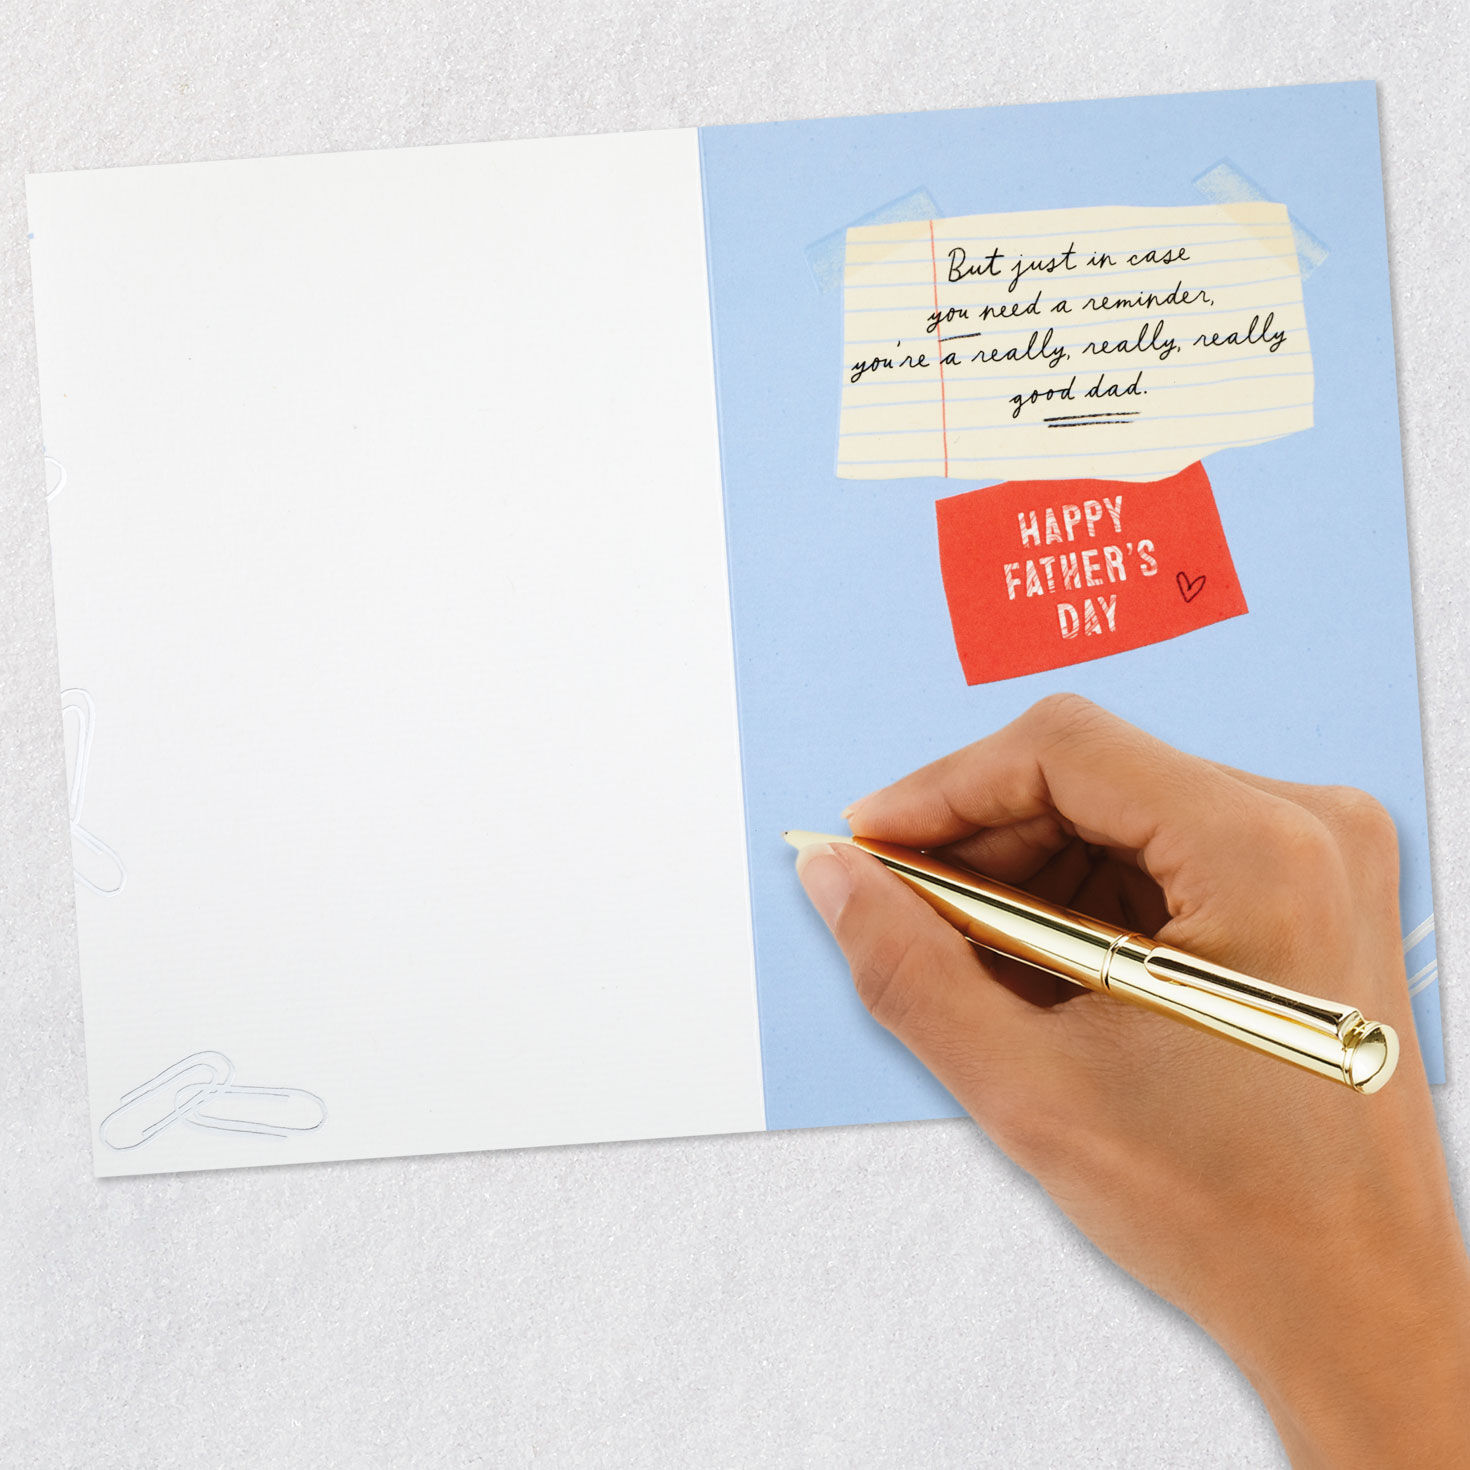 But just in case
you need a reminder,
you're a really, really, really
good dad.
HAPPY
FATHER'S
DAY